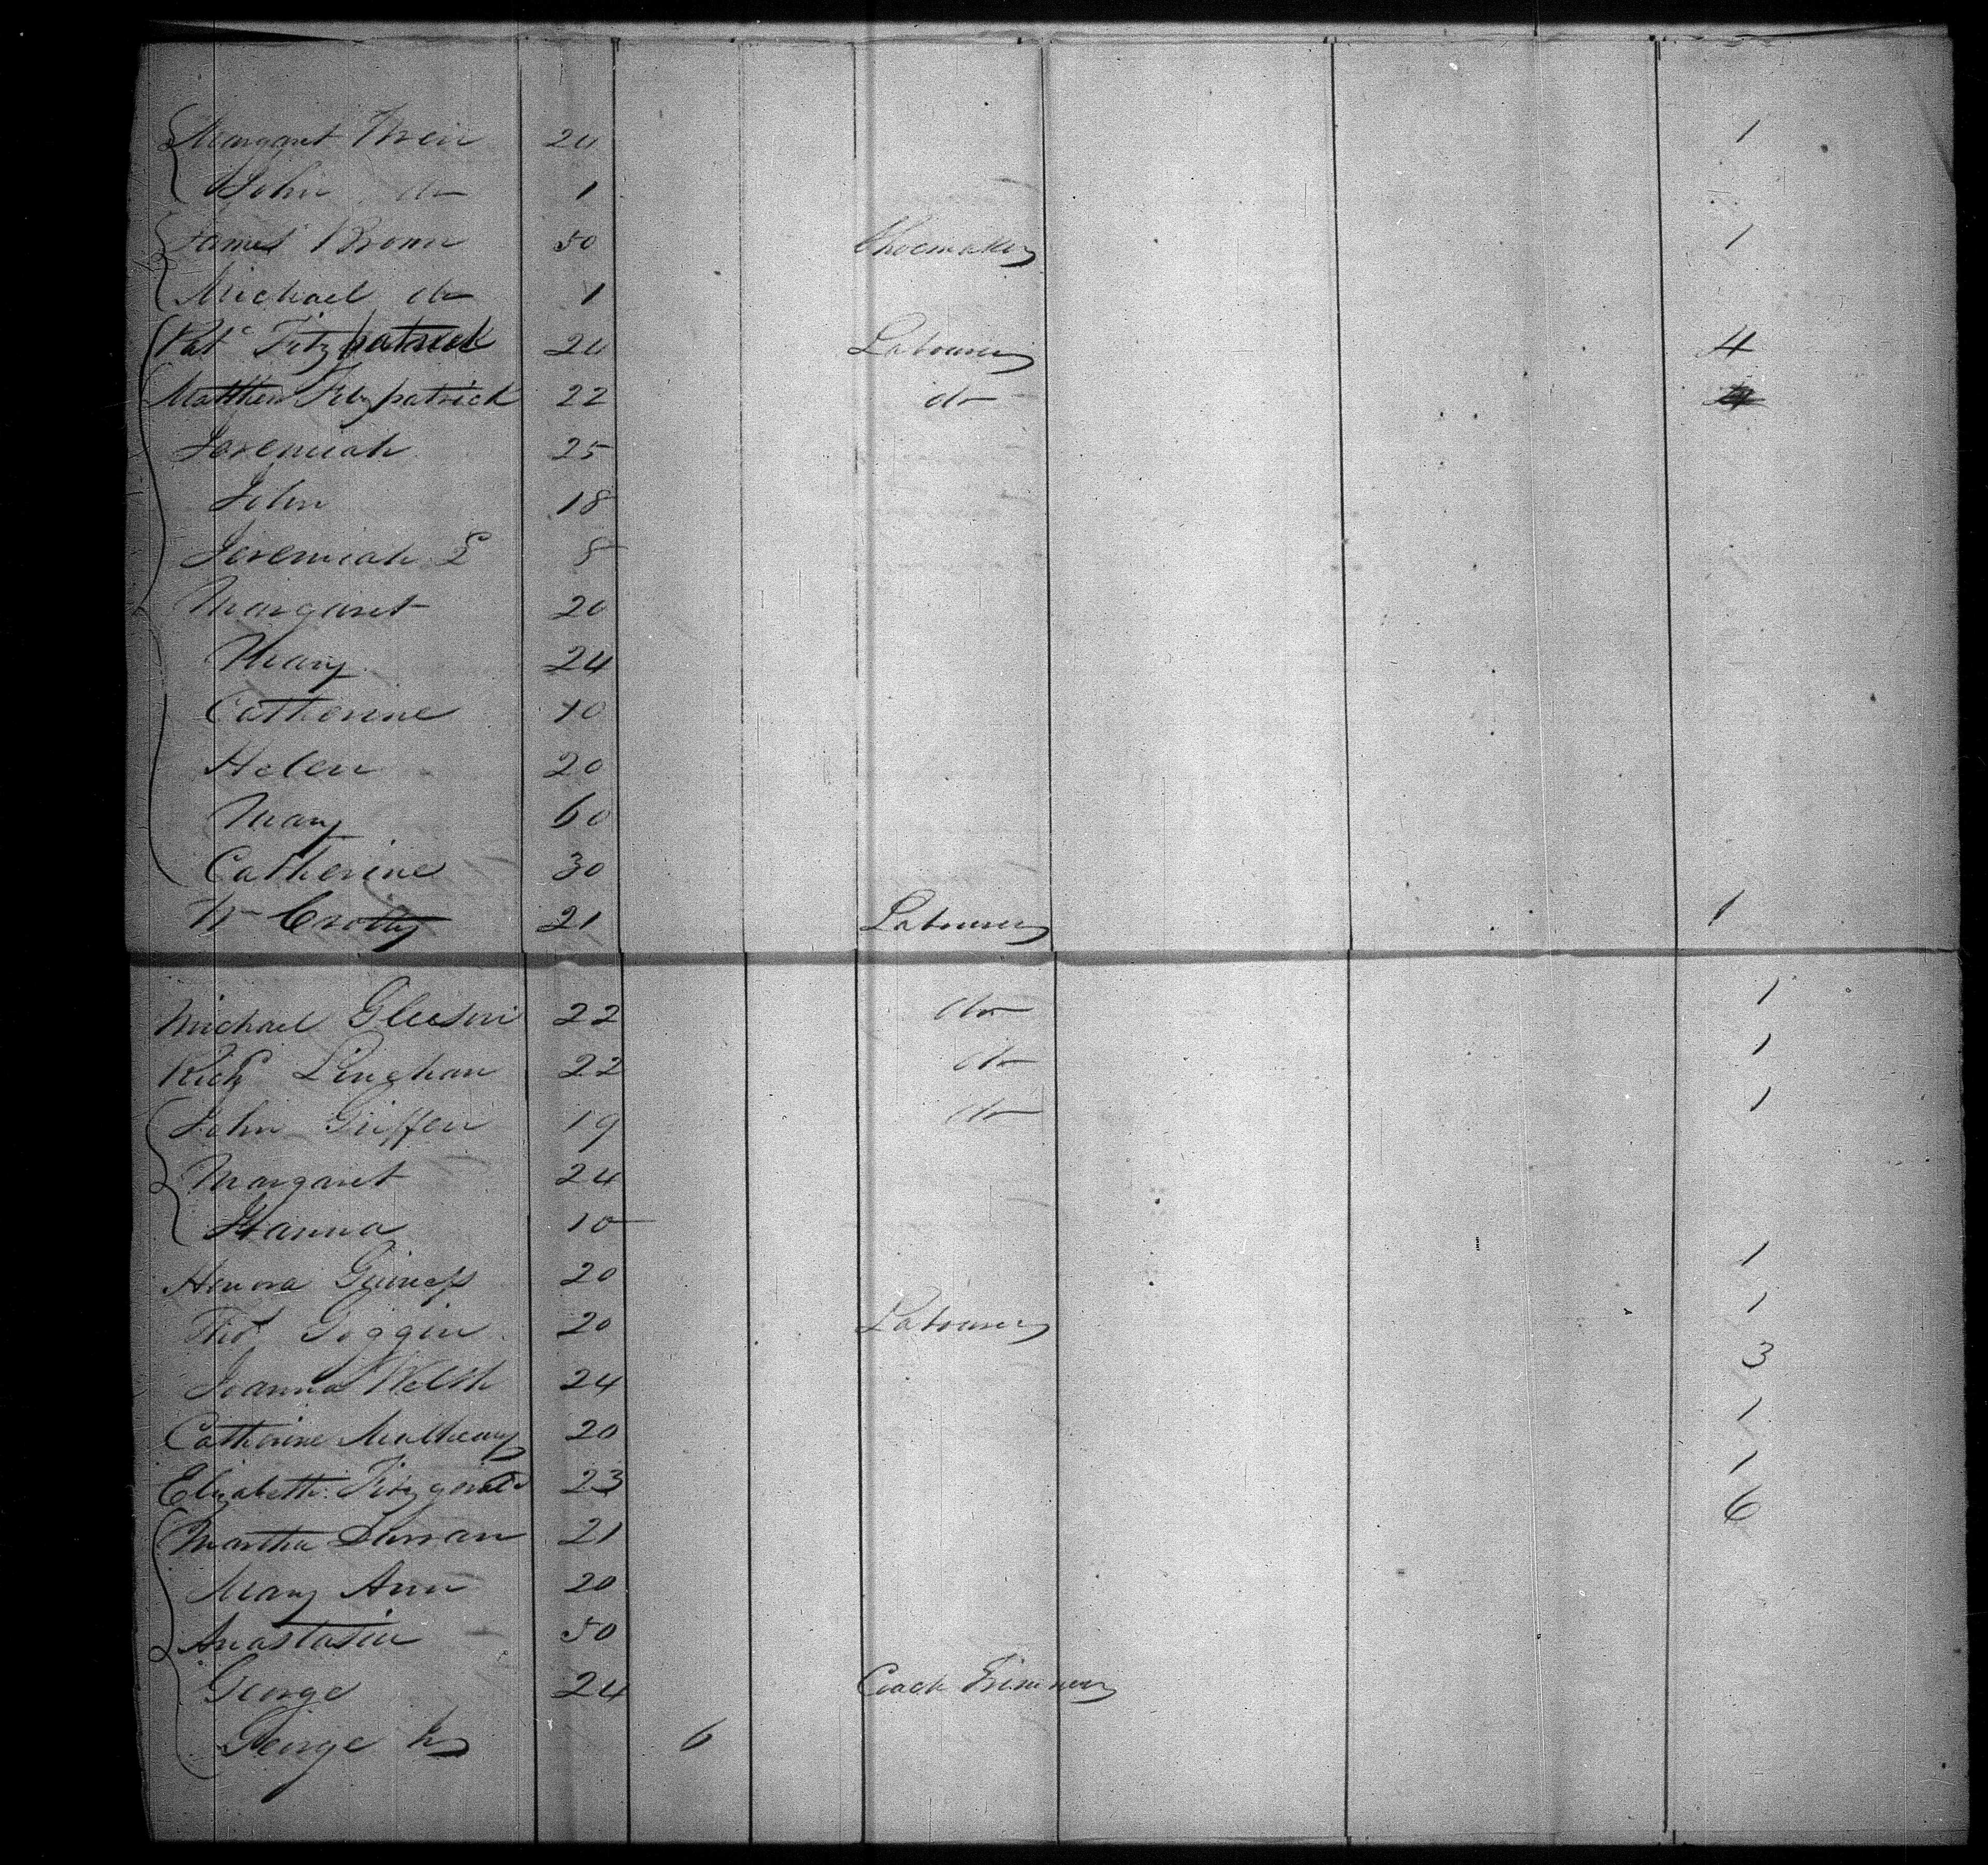 Margaret 20 1
John do 1
James Brown 50 Shoemaker 1
Michael do 1
Patk Fitzpatrick 20 Labourer 4
Matthew Fitzpatrick 22 do
Jeremiah 25
John 18
Jeremiah 2d 8
Margaret 20
Mary 24
Catherine 10
Helen 20
Mary 60
Catherine 30
Wm Crotty 21 Labourer 1
Michael Gleeson 22 do 1
Richd Linehan 22 do 1
John Griffen 19 do 1
Margaret 24
Hanna 10
Honora Guiness 20 1
Thos Goggin 20 Labourer 1
Joanna Welsh 24 3
Catherine 20 1
Elizabeth Fitzgerald 23 1
Martha 21 6
Mary Ann 20
Anastasia 50
George 24 Coach Trimmer
George 6